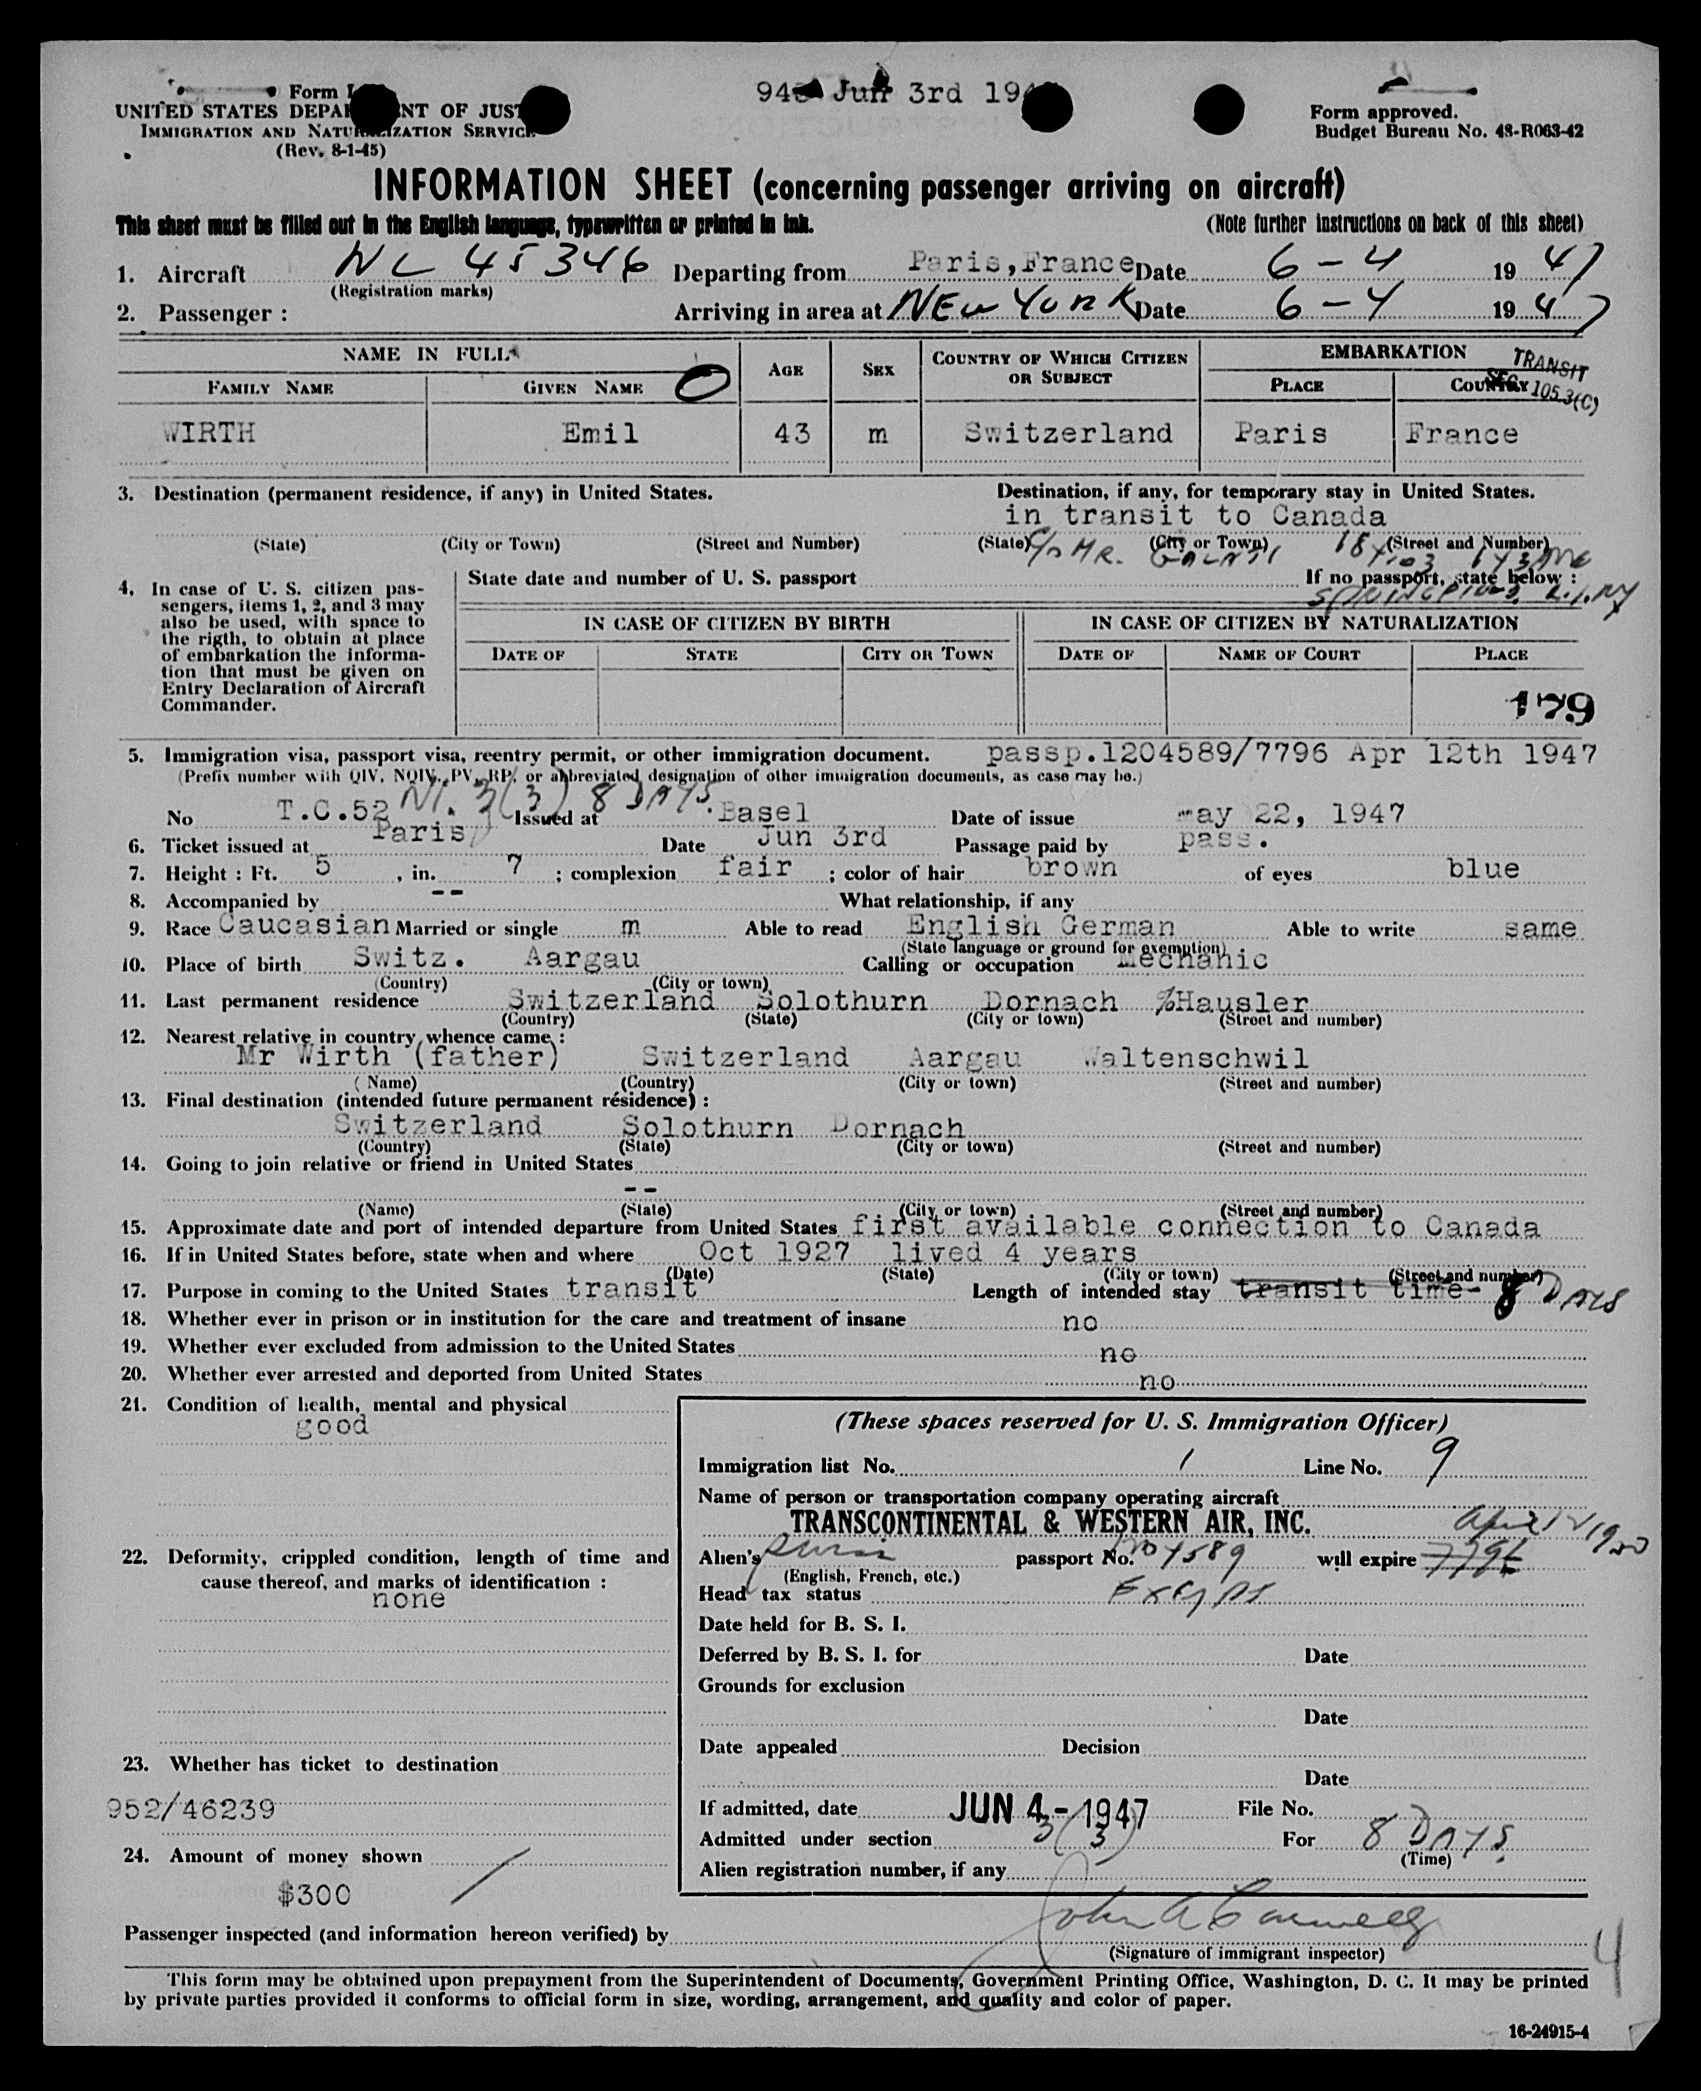 Form I
94 Jun 3rd 194
UNITED STATES DEPA NT OF JUST
Form approved.
IMMIGRATION AND NATURALIZATION SERVICE
Budget Bureau No. 43-R063-42
(Rev. 8-1-45)
INFORMATION SHEET (concerning passenger arriving on aircraft)
This sheet must be filled out in the English language, typewritten or printed in ink. (Note further instructions on back of this sheet)
1. Aircraft NC 45346 Departing from Paris, France Date 6-4 19 47
(Registration marks)
2. Passenger : Arriving in area at NEW YORK Date 6-4 19 47
NAME IN FULL AGE SEX COUNTRY OF WHICH CITIZEN OR SUBJECT EMBARKATION
TRANSIT
SEC. 105.3(C)
FAMILY NAME GIVEN NAME PLACE COUNTRY
WIRTH Emil 43 m Switzerland Paris France
3. Destination (permanent residence, if any) in United States. Destination, if any, for temporary stay in United States.
in transit to Canada
(State) (City or Town) (Street and Number) (State) (City or Town) (Street and Number)
c/o MR.
4. In case of U. S. citizen passengers, items 1, 2, and 3 may also be used, with space to the rigth, to obtain at place of embarkation the information that must be given on Entry Declaration of Aircraft Commander.
State date and number of U. S. passport If no passport, state below :
L.I. NY
IN CASE OF CITIZEN BY BIRTH IN CASE OF CITIZEN BY NATURALIZATION
DATE OF STATE CITY OR TOWN DATE OF NAME OF COURT PLACE
179
5. Immigration visa, passport visa, reentry permit, or other immigration document. passp.1204589/7796 Apr 12th 1947
(Prefix number with QIV, NQIV, PV, RP, or abbreviated designation of other immigration documents, as case may be.)
3(3) 8 DAYS.
No T.C.52 Issued at Basel Date of issue may 22, 1947
6. Ticket issued at Paris Date Jun 3rd Passage paid by pass.
7. Height : Ft. 5 , in. 7 ; complexion fair ; color of hair brown of eyes blue
8. Accompanied by -- What relationship, if any
9. Race Caucasian Married or single m Able to read English German Able to write same
(State language or ground for exemption)
10. Place of birth Switz. Aargau Calling or occupation Mechanic
(Country) (City or town)
11. Last permanent residence Switzerland Solothurn Dornach %Hausler
(Country) (State) (City or town) (Street and number)
12. Nearest relative in country whence came :
Mr Wirth (father) Switzerland Aargau Waltenschwil
(Name) (Country) (City or town) (Street and number)
13. Final destination (intended future permanent residence) :
Switzerland Solothurn Dornach
(Country) (State) (City or town) (Street and number)
14. Going to join relative or friend in United States
--
(Name) (State) (City or town) (Street and number)
15. Approximate date and port of intended departure from United States first available connection to Canada
16. If in United States before, state when and where Oct 1927 lived 4 years
(Date) (State) (City or town) (Street and number)
17. Purpose in coming to the United States transit Length of intended stay transit time- 8 DAYS
18. Whether ever in prison or in institution for the care and treatment of insane no
19. Whether ever excluded from admission to the United States no
20. Whether ever arrested and deported from United States no
21. Condition of health, mental and physical
good
22. Deformity, crippled condition, length of time and cause thereof, and marks of identification :
none
23. Whether has ticket to destination
952/46239
24. Amount of money shown
$300
(These spaces reserved for U. S. Immigration Officer)
Immigration list No. 1 Line No. 9
Name of person or transportation company operating aircraft
TRANSCONTINENTAL & WESTERN AIR, INC.
Alien's Swiss passport No. 1204589 will expire 7796 April 12 1950
(English, French, etc.)
Head tax status Exempt
Date held for B. S. I.
Deferred by B. S. I. for Date
Grounds for exclusion
Date
Date appealed Decision
Date
If admitted, date JUN 4-1947 File No.
Admitted under section 3(3) For 8 DAYS.
(Time)
Alien registration number, if any
Passenger inspected (and information hereon verified) by
(Signature of immigrant inspector)
4
This form may be obtained upon prepayment from the Superintendent of Documents, Government Printing Office, Washington, D. C. It may be printed
by private parties provided it conforms to official form in size, wording, arrangement, and quality and color of paper.
16-24915-4